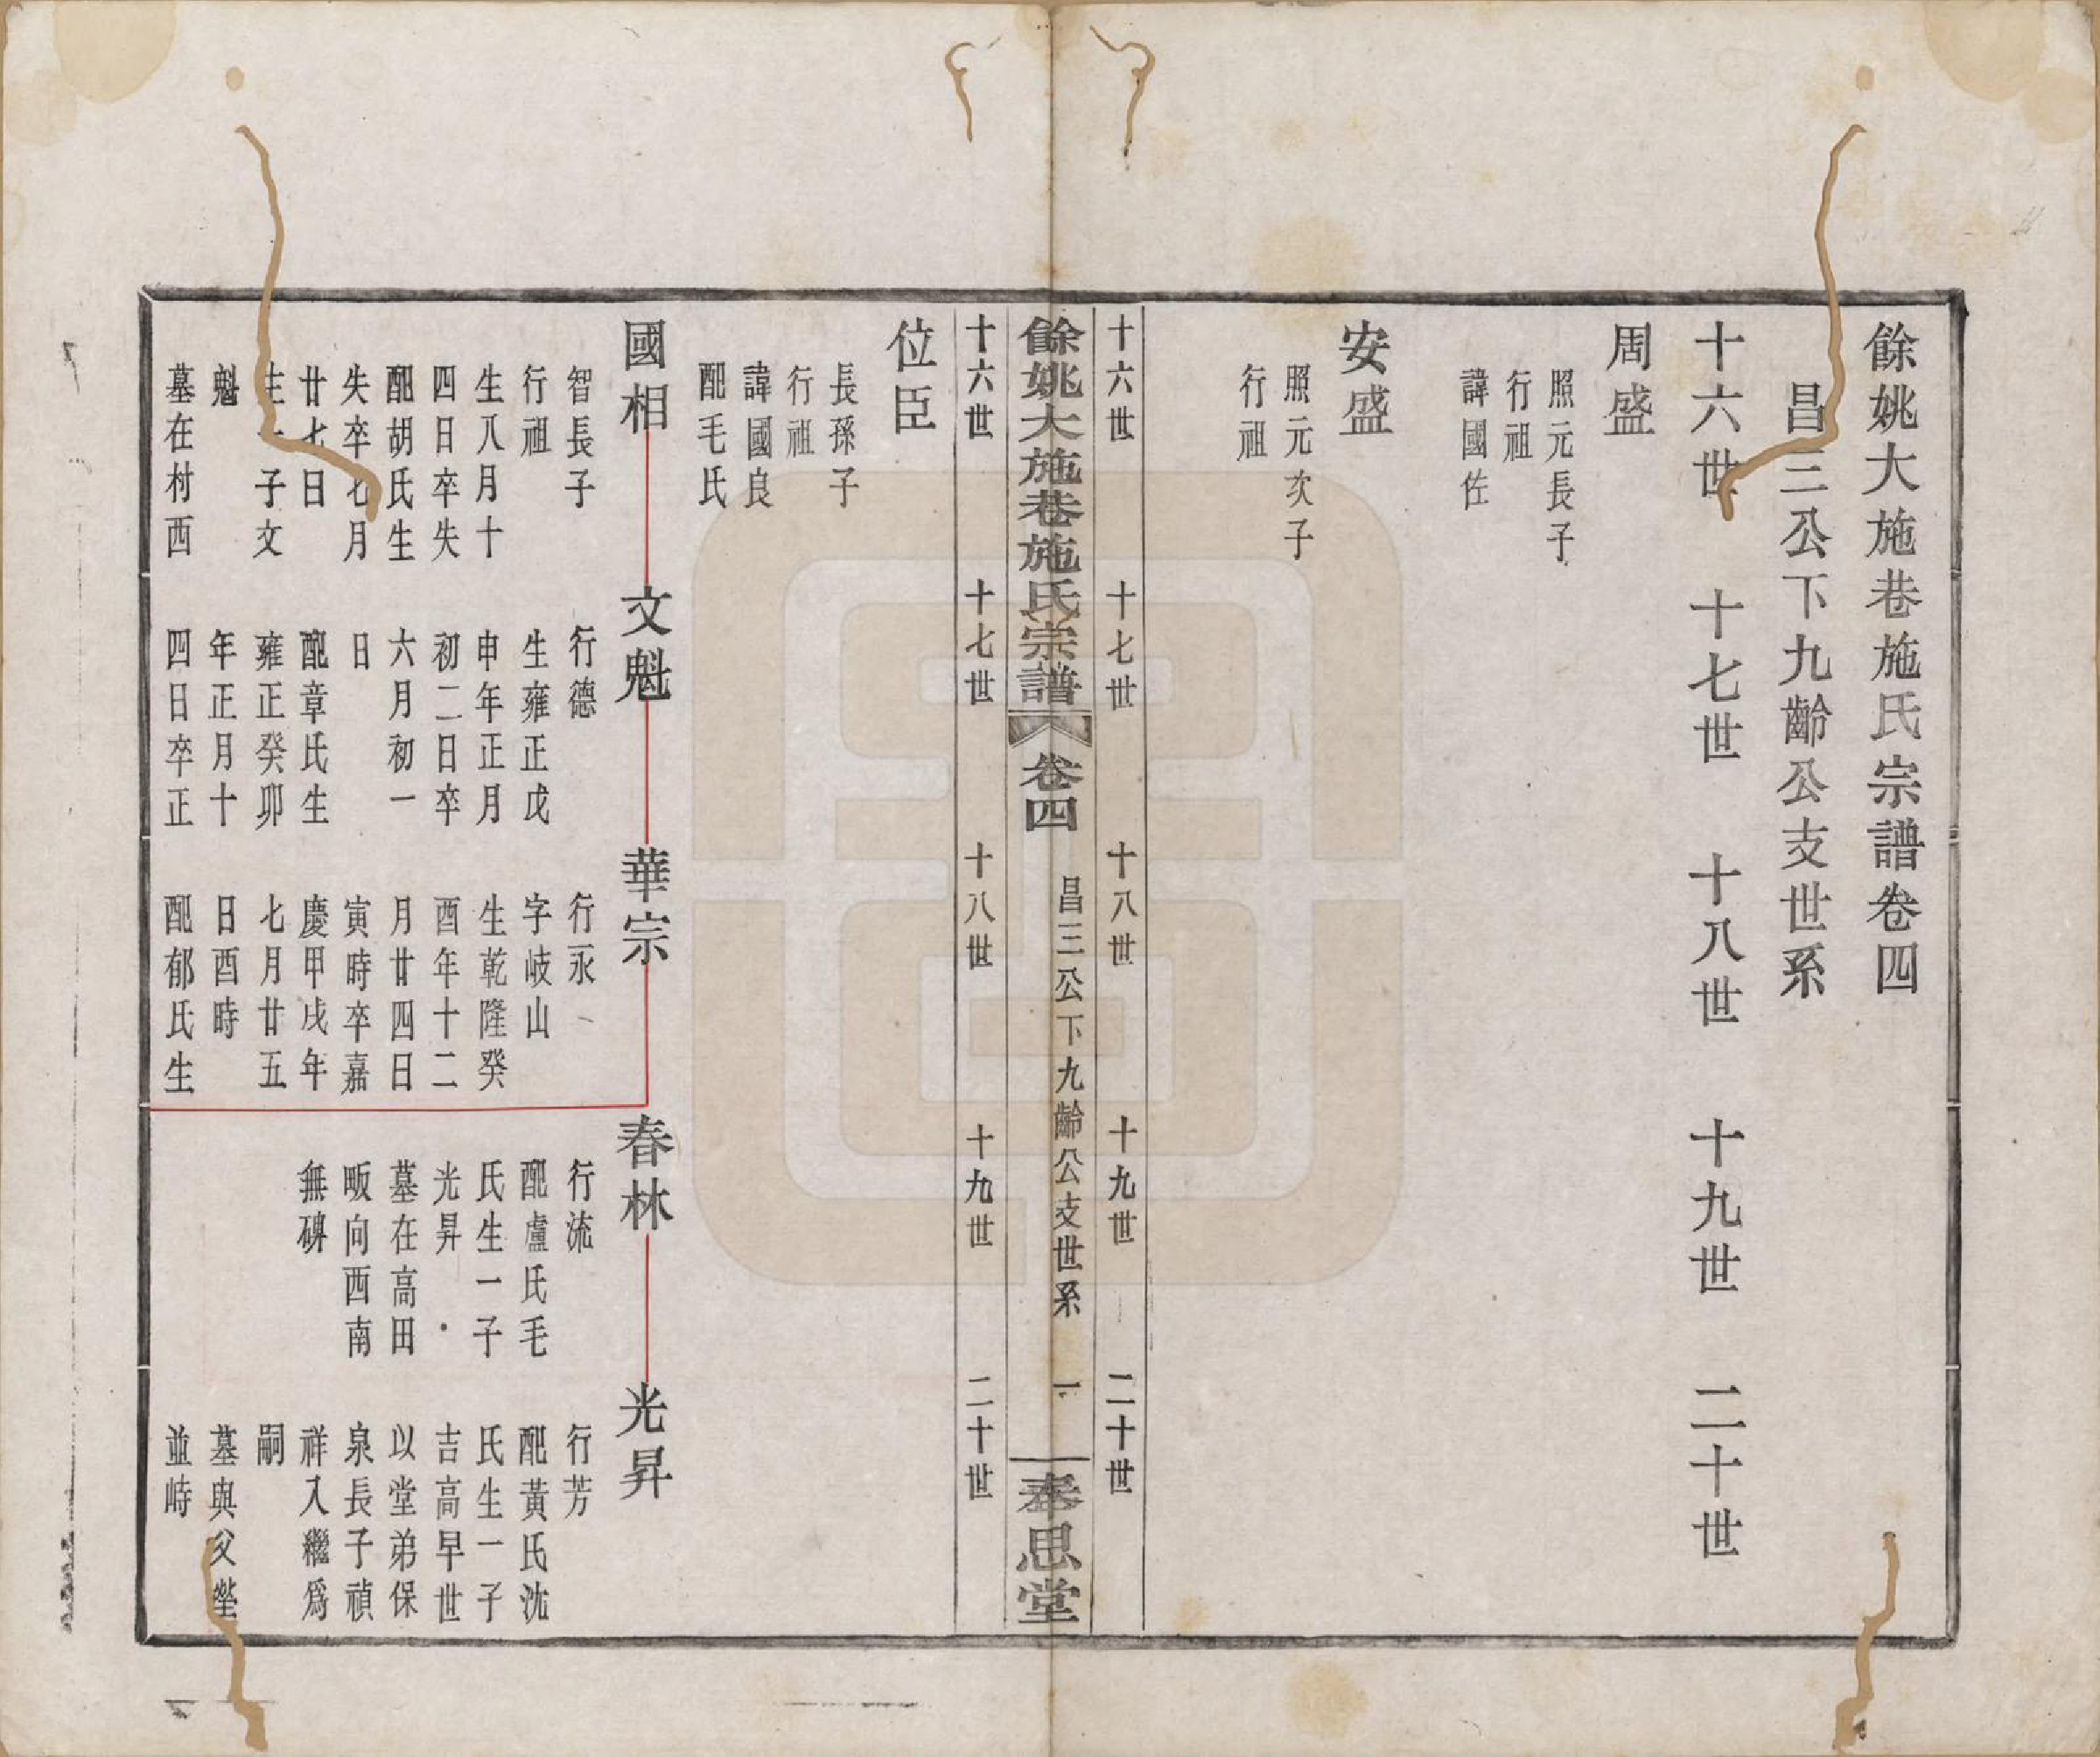 餘姚大施巷施氏宗譜卷四
昌三公下九齡公支世系
十六世　十七世　十八世　十九世　二十世
周盛
照元長子
行祖
諱國佐
安盛
照元次子
行祖
十六世　十七世　十八世　十九世　二十世
餘姚大施巷施氏宗譜　卷四　昌三公下九齡公支世系　一　奉思堂
十六世　十七世　十八世　十九世　二十世
位臣
長孫子
行祖
諱國良
配毛氏
國相
智長子
行祖
生八月十
四日卒失
配胡氏生
失卒七月
廿七日
生一子文
魁
墓在村西
文魁
行德
生雍正戊
申年正月
初二日卒
六月初一
日
配章氏生
雍正癸卯
年正月十
四日卒正
華宗
行永
字岐山
生乾隆癸
酉年十二
月廿四日
寅時卒嘉
慶甲戌年
七月廿五
日酉時
配郁氏生
春林
行流
配盧氏毛
氏生一子
光昇
墓在高田
畈向西南
無碑
光昇
行芳
配黃氏沈
氏生一子
吉高早世
以堂弟保
泉長子禎
祥入繼為
嗣
墓與父塋
並峙